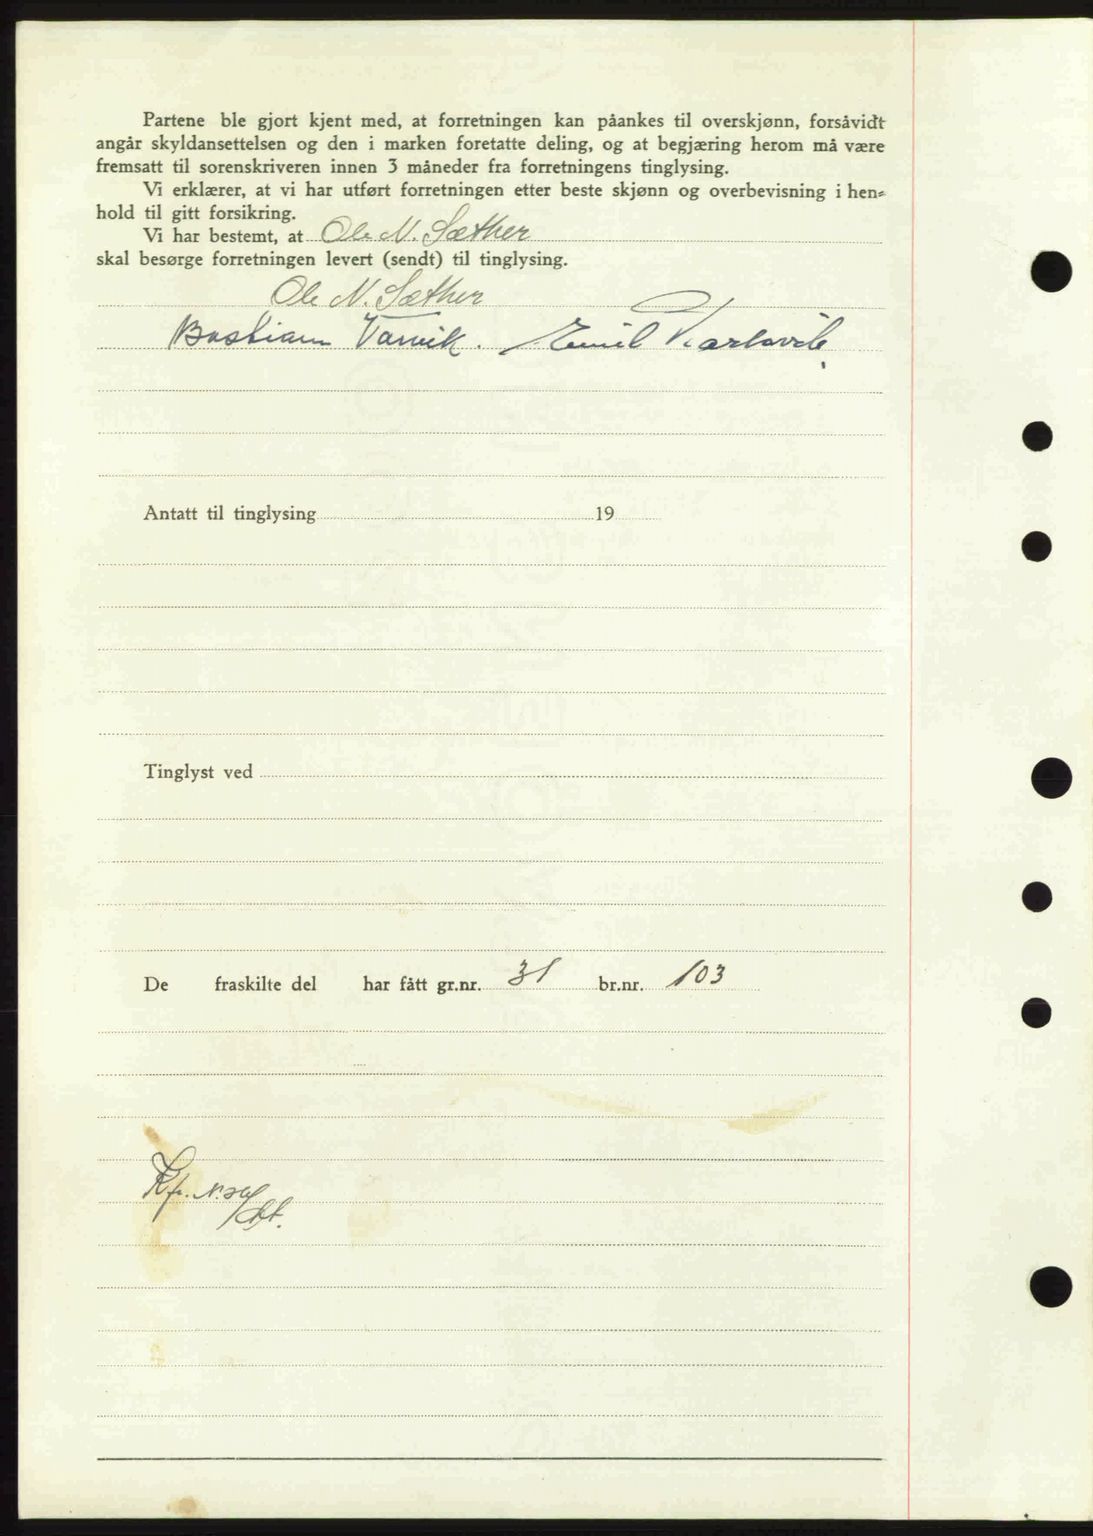 Partene ble gjort kjent med, at forretningen kan påankes til overskjønn, forsåvidt
angår skyldansettelsen og den i marken foretatte deling, og at begjæring herom må være
fremsatt til sorenskriveren innen 3 måneder fra forretningens tinglysing.
Vi erklærer, at vi har utført forretningen etter beste skjønn og overbevisning i hen-
hold til gitt forsikring.
Vi har bestemt, at Ole N. Sæther
skal besørge forretningen levert (sendt) til tinglysing.
Ole N. Sæther
Bastian Varvik. Emil
Antatt til tinglysing 19
Tinglyst ved
De fraskilte del har fått gr.nr. 31 br.nr. 103